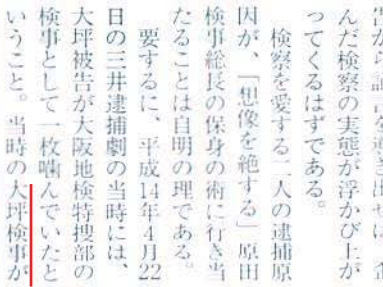 んだ検察の実態が浮かび上が
ってくるはずである。
検察を愛する二人の逮捕原
因が、「想像を絶する」原田
検事総長の保身の術に行き当
たることは自明の理である。
要するに、平成14年4月22
日の三井逮捕劇の当時には、
大坪被告が大阪地検特捜部の
検事として一枚噛んでいたと
いうこと。当時の大坪検事が